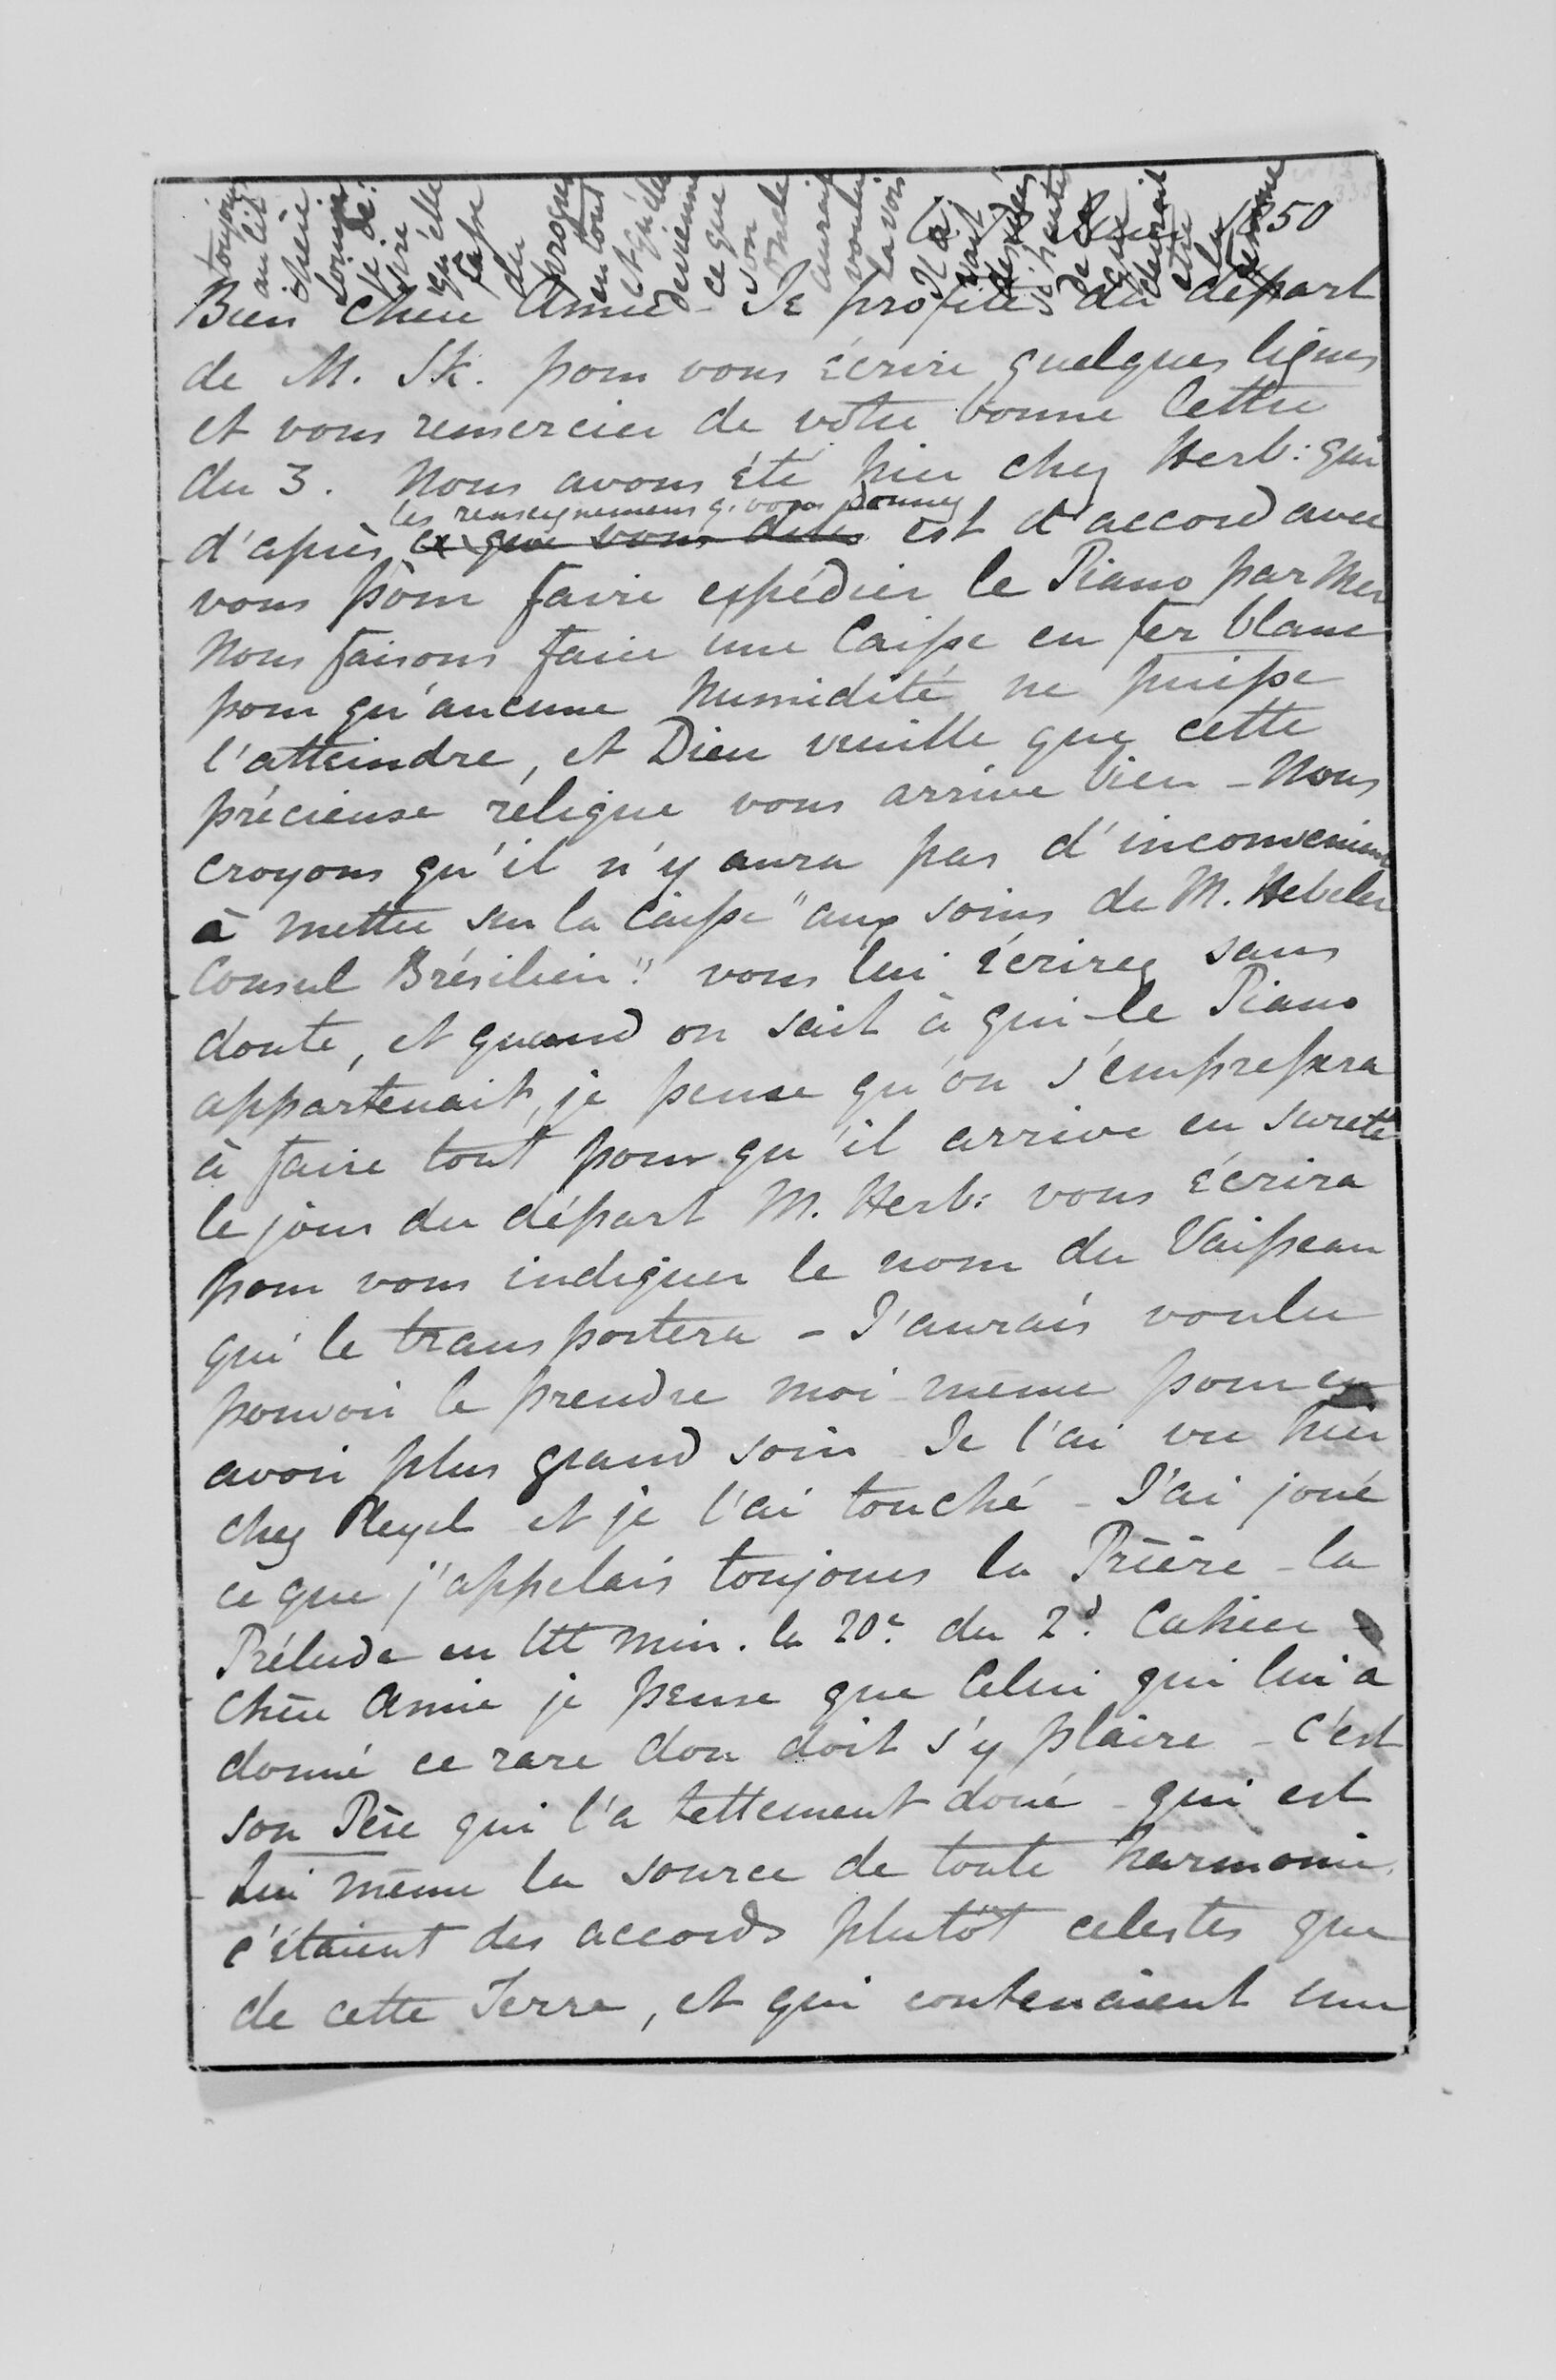 1850
Bien chère Amie - Je profite du départ
de M. Sk. pour vous écrire quelques lignes
et vous remercier de votre bonne lettre
du 3. Nous avons été hier chez Herb: qui
les renseignemens q. vous donnez
d'après ce que vous dites est d'accord avec
vous pour faire expédier le Piano par Mer
Nous faisons faire une Caisse en fer blanc
pour qu'aucune humidité ne puisse
l'atteindre, et Dieu veuille que cette
précieuse rélique vous arrive bien - Nous
croyons qu'il n'y aura pas d'inconvenient
à mettre sur la Caisse "aux soins de M. Hebeler
Consul Brésilien" vous lui écrirez sans
doute, et quand on sait à qui le Piano
appartenait, je pense qu'on s'empressera
à faire tout pour qu'il arrive en sureté
le jour du départ M. Herb: vous écrira
pour vous indiquer le nom du Vaisseau
qui le transportera - J'aurais voulu
pouvoir le prendre moi-même pour en
avoir plus grand soin Je l'ai vu hier
chez Pleyel et je l'ai touché - J'ai joué
ce que j'appelais toujours la Prière - la
Prélude en Ut min. la 20e. du 2d. Cahier -
Chère Amie je pense que Celui qui lui a
donné ce rare don doit s'y plaire - C'est
son Père qui l'a tellement doué - qui est
Lui même la source de toute harmonie,
c'étaient des accords plutôt celestes que
de cette Terre, et qui contenaient une
toujours
au lit
chère
Louise
je dé:
sire
qu'elle
fasse
du
progrès
en tout
et qu'elle
devienne
ce que
son
oncle
aurait
voulu
la voir
Il a
sait
si haute
de ce
que
devrait
être
la
femme